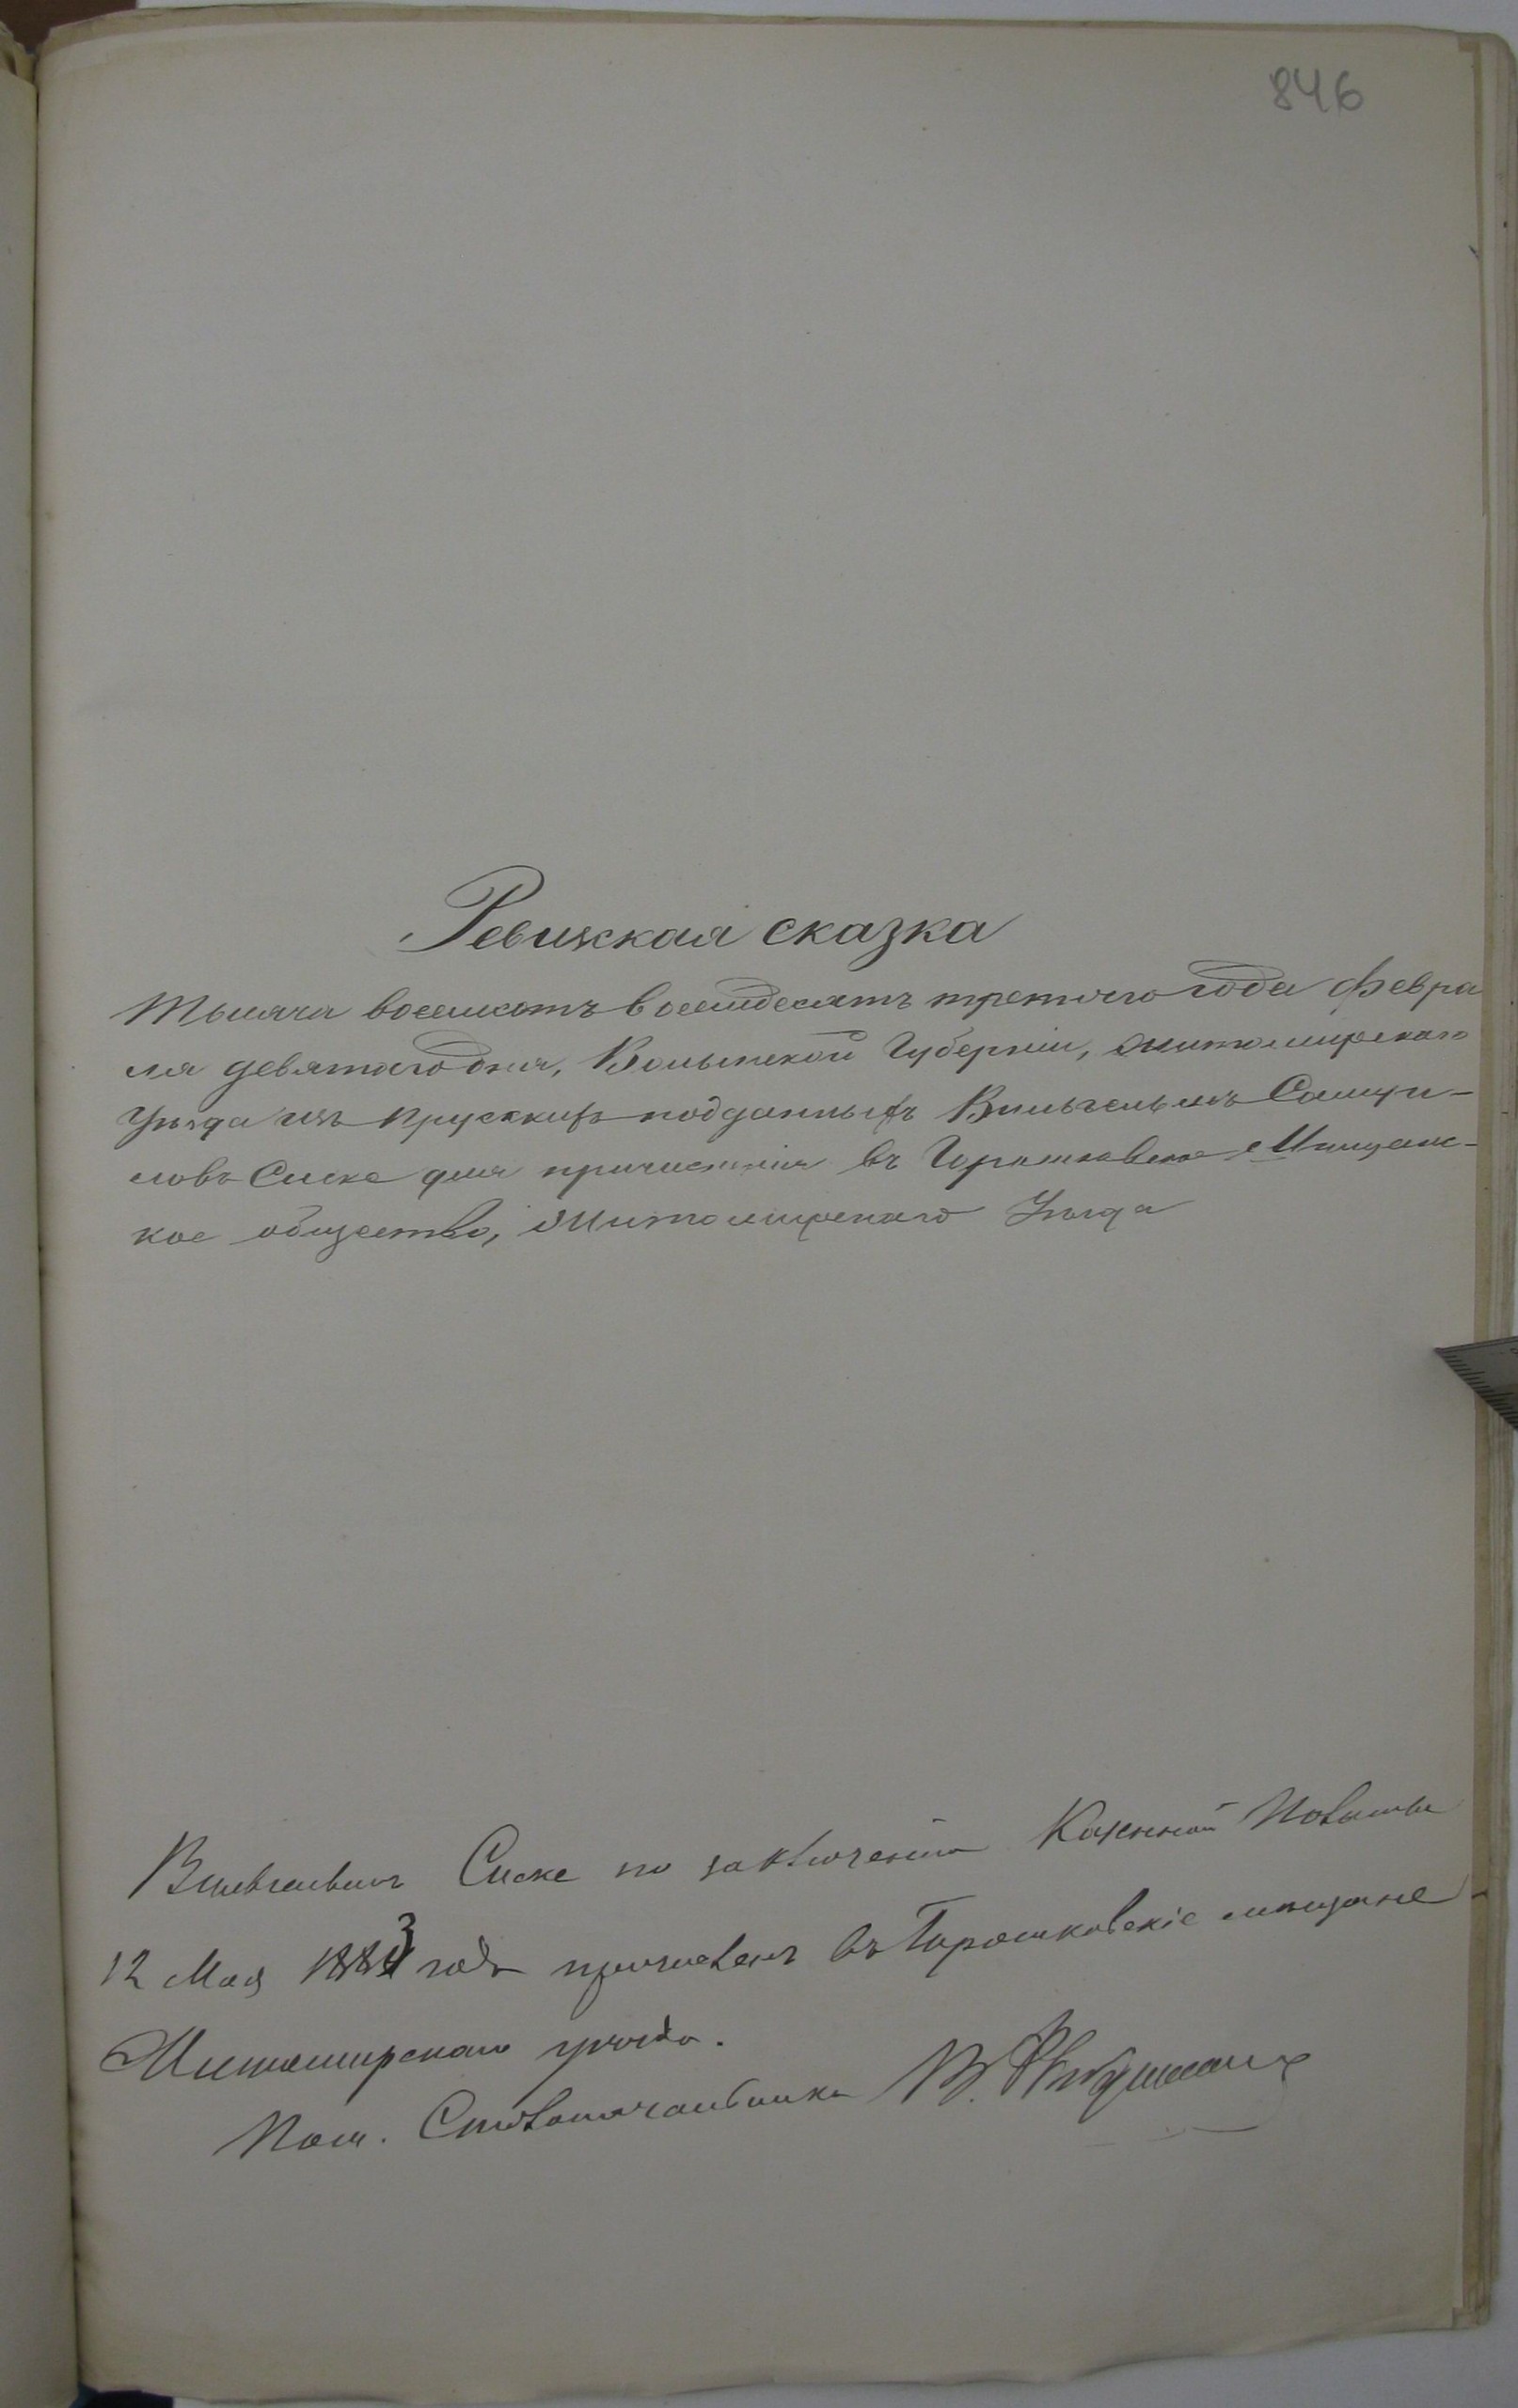 846
Ревижская сказка
Тысяча восемсотъ восемдесятъ третьяго года Февра
ля девятаго дня, Волынской Губерніи, Житомирскаго
Уѣзда изъ Прусскихъ подданныхъ Вильгельмъ Самуи-
ловъ Сиске для причисленія въ Горошковское Мѣщанс-
кое общество, Житомирскаго Уѣзда
Вильгельмъ Сиске по заключенію Казенной Палаты
12 Мая 1883 года причисленъ въ Горошковскіе мѣщане
Житомирскаго уѣзда.
Пом. Столоначальника В.